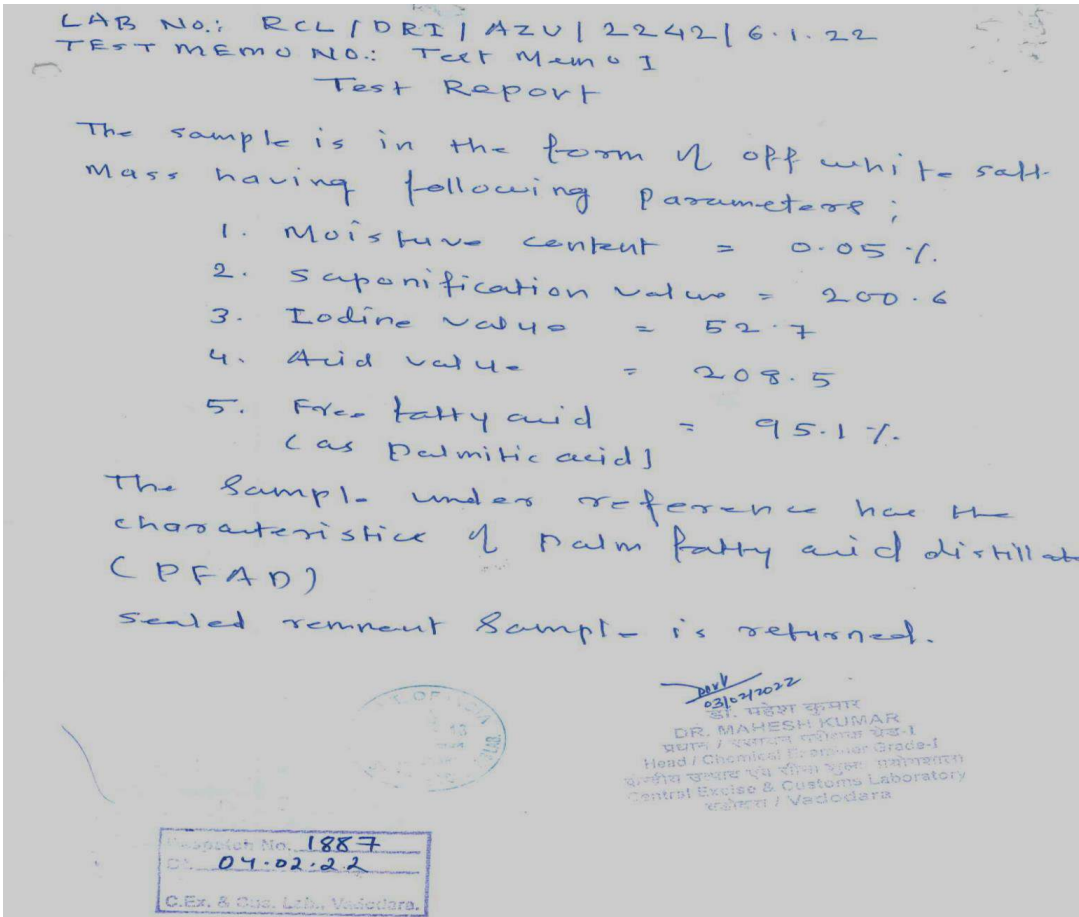 LAB NO.: RCL/DRI/AZU/2242/6.1.22
TEST MEMO NO.: Test Memo I
Test Report
The sample is in the form of off white soft
Mass having following Parameters;
1. Moisture content = 0.05 %.
2. saponification value = 200.6
3. Iodine value = 52.7
4. Acid value = 208.5
5. Free fatty acid = 95.1 %.
(as Palmitic acid)
The Sample under reference has the
characteristics of Palm fatty acid distillate
(PFAD)
Sealed remnant Sample is returned.
03/02/2022
डॉ. महेश कुमार
DR. MAHESH KUMAR
Head / Chemical Examiner Grade-I
Central Excise & Customs Laboratory
वडोदरा / Vadodara
OF INDIA
LAB.
Despatch No. 1887
04.02.22
C.Ex. & Cus. Lab., Vadodara.